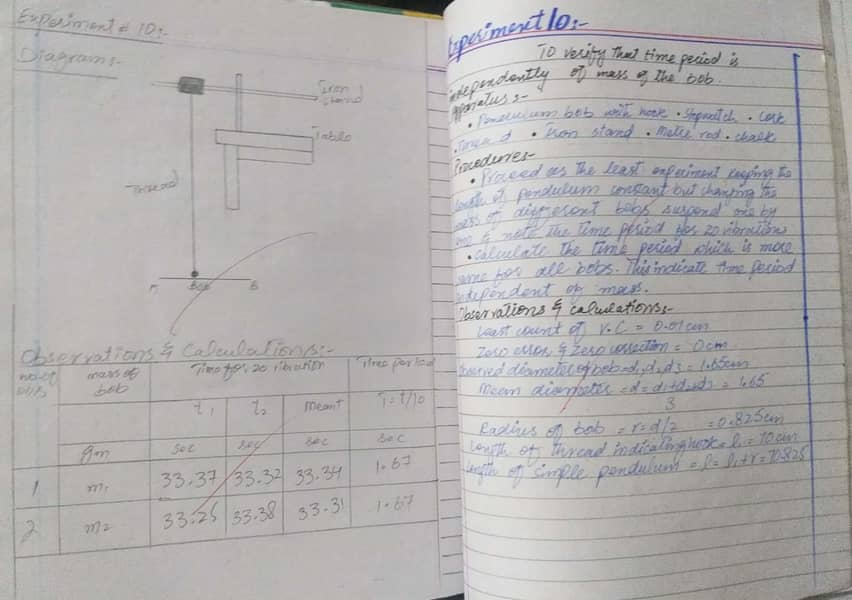 Experiment # 10:-
Diagram:-
Iron
stand
Table
Thread
A Bob B
Observations & Calculations:-
no. of obs
mass of bob
Time for 20 vibration
Time period
t1 t2 Mean t T = t/10
gm sec sec sec sec
1 m1 33.37 33.32 33.34 1.67
2 m2 33.25 33.38 33.31 1.67
Experiment 10:-
To verify that time period is
independently of mass of the bob.
Apparatus:-
• Pendulum bob with hook • stopwatch • cork
• Thread • Iron stand • Metre rod • chalk
Procedure:-
• Proceed as the least experiment keeping the
length of pendulum constant but changing the
mass of different bobs suspend one by
one & note the time period for 20 vibration
• calculate the time period which is more
same for all bobs. This indicate time period
independent of mass.
Observations & calculations:-
Least count of V.C = 0.01cm
Zero error & zero correction = 0cm
Observed diameter of bob = d1, d2, d3 = 1.65cm
Mean diameter = d = d1+d2+d3 = 1.65
3
Radius of bob = r = d/2 = 0.825cm
Length of thread indicating hook = l1 = 10cm
Length of simple pendulum = l = l1+r = 10.825